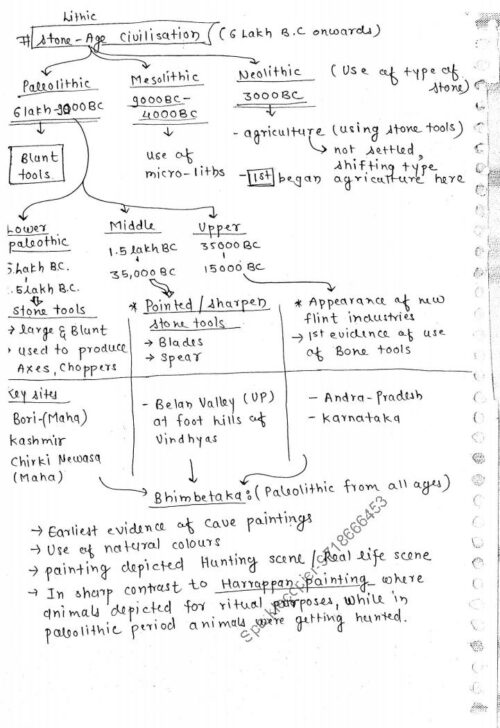 Lithic
# Stone-Age Civilisation (6 Lakh B.C onwards)
Paleolithic
6 lakh-9000BC
Blunt
tools
Mesolithic
9000BC-
4000BC
use of
micro-liths
Neolithic
3000BC
(Use of type of
stone)
- agriculture (using stone tools)
not settled,
shifting type
- 1st began agriculture here
Lower
paleothic
5 Lakh B.C.
.5 lakh B.C.
Stone tools
→ large & Blunt
used to produce
Axes, Choppers
Middle
1.5 lakh BC
35,000 BC
* Pointed / sharpen
stone tools
→ Blades
→ Spear
Upper
35000 BC
15000 BC
* Appearance of new
flint industries
→ 1st evidence of use
of Bone tools
Key sites
Bori-(Maha)
Kashmir
Chirki Newasa
(Maha)
- Belan Valley (UP)
at foot hills of
Vindhyas
- Andra-Pradesh
- Karnataka
Bhimbetaka: (Paleolithic from all ages)
→ Earliest evidence of cave paintings
→ Use of natural colours
→ painting depicted Hunting scene / Real life scene
→ In sharp contrast to Harrappan Painting where
animals depicted for ritual purposes, while in
paleolithic period animals were getting hunted.